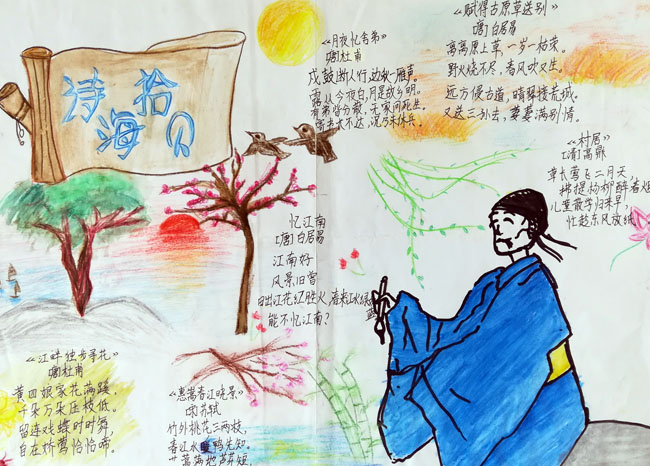 诗海拾贝
《月夜忆舍弟》
[唐]杜甫
戍鼓断人行,边秋一雁声。
露从今夜白,月是故乡明。
有弟皆分散,无家问死生。
寄书长不达,况乃未休兵。
《赋得古原草送别》
[唐]白居易
离离原上草,一岁一枯荣。
野火烧不尽,春风吹又生。
远方侵古道,晴翠接荒城。
又送王孙去,萋萋满别情。
《村居》
[清]高鼎
草长莺飞二月天,
拂堤杨柳醉春烟
儿童散学归来早,
忙趁东风放纸
忆江南
[唐]白居易
江南好
风景旧曾
日出江花红胜火,春来江水绿
蓝
能不忆江南?
《江畔独步寻花》
[唐]杜甫
黄四娘家花满蹊,
千朵万朵压枝低。
留连戏蝶时时舞,
自在娇莺恰恰啼。
《惠崇春江晓景》
[宋]苏轼
竹外桃花三两枝,
春江水暖鸭先知。
蒌蒿满地芦芽短,